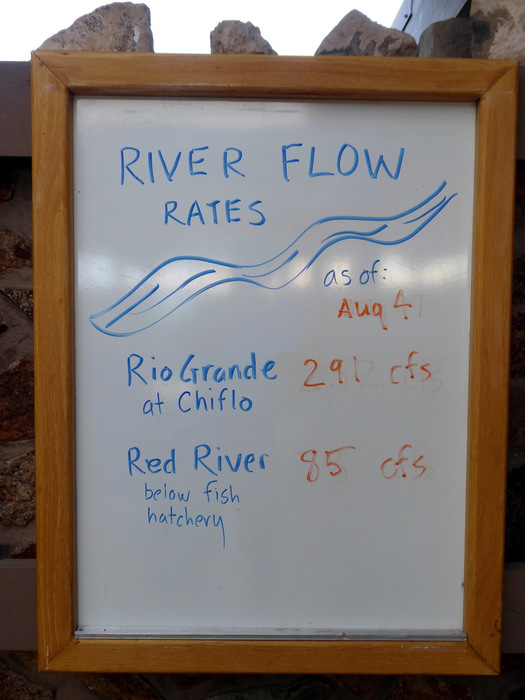 RIVER FLOW
RATES
as of:
Aug 4
Rio Grande 291 cfs
at Chiflo
Red River 85 cfs
below fish
hatchery